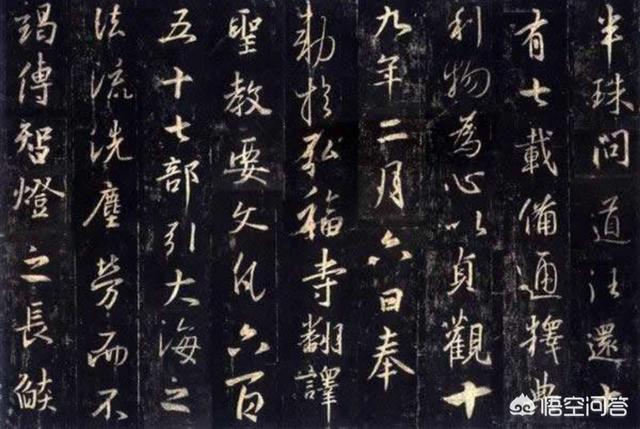 半珠問道往還十
有七載備通釋典
利物為心以貞觀十
九年二月六日奉
勅於弘福寺翻譯
聖教要文凡六百
五十七部引大海之
法流洗塵勞而不
竭傳智燈之長
悟空问答